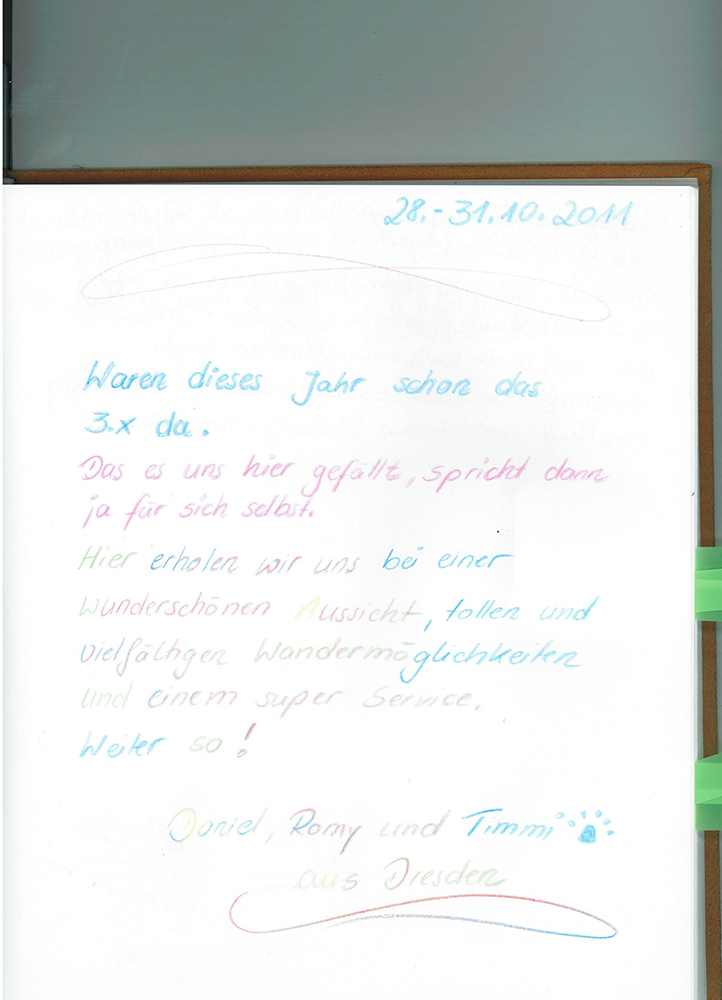 28.-31.10.2011
Waren dieses Jahr schon das
3.x da.
Das es uns hier gefällt, spricht dann
ja für sich selbst.
Hier erholen wir uns bei einer
wunderschönen Aussicht, tollen und
vielfältigen Wandermöglichkeiten
und einem super Service.
Weiter so!
Daniel, Romy und Timmi
aus Dresden